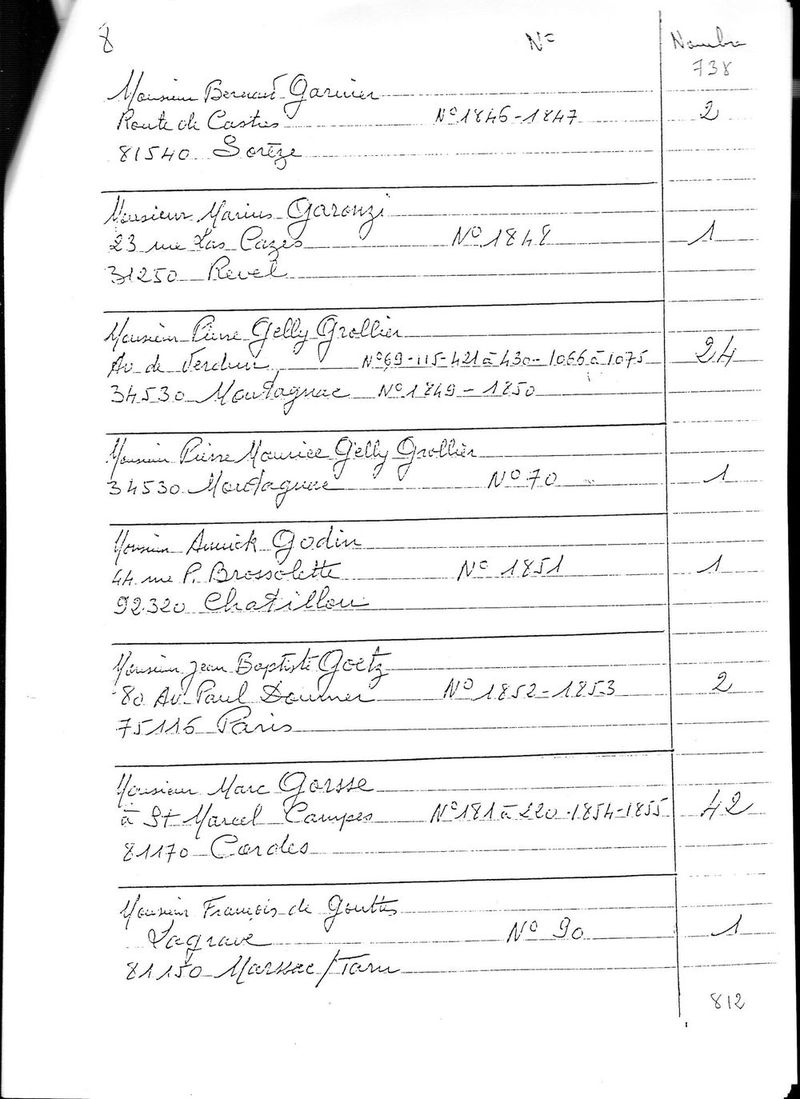 8 N° Nombre
738
Monsieur Bernard Garnier
Route de Castres N° 1846-1847 2
81540 Sorèze
Monsieur Marius Garonzi
23 rue Las Cazes N° 1848 1
31250 Revel
Monsieur Pierre Gelly Grollier
Av de Verdun N° 69-115-421 à 430-1066 à 1075 24
34530 Montagnac N° 1849-1850
Monsieur Pierre Maurice Gelly Grollier
34530 Montagnac N° 70 1
Monsieur Annick Godin
44 rue P. Brossolette N° 1851 1
92320 Chatillon
Monsieur Jean Baptiste Goetz
80 Av. Paul Doumer N° 1852-1853 2
75116 Paris
Monsieur Marc Gorsse
à St Marcel Campes N° 181 à 220-1854-1855 42
81170 Cordes
Monsieur François de Gouttes
Lagrave N° 90 1
81150 Marssac/Tarn
812